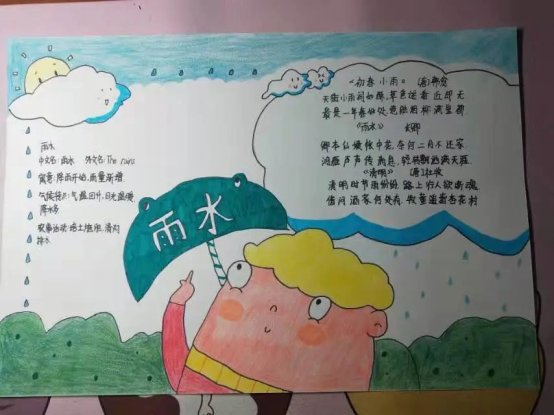 雨水
中文名：雨水 外文名：The rains
寓意：降雨开始，雨量渐增
气候特点：气温回升、日光温暖、
降水多
农事活动：培土施肥，清沟
排水
雨水
《初春小雨》 (唐)韩愈
天街小雨润如酥，草色遥看近却无
最是一年春好处，绝胜烟柳满皇都
《雨水》
鸿雁声声传
《清明》 (唐)杜牧
清明时节雨纷纷，路上行人欲断魂
借问酒家何处有，牧童遥指杏花村